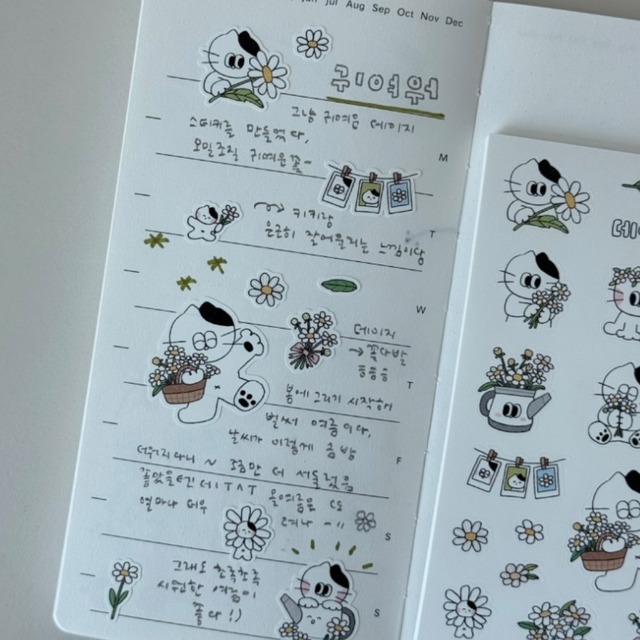 Jul Aug Sep Oct Nov Dec
귀여워
그냥 귀여움 데이지
스티커를 만들었다,
오밀조밀 귀여운꽃~
M
키키랑
T
은근히 잘어울리는 느낌이당
W
데이지
→ 꽃다발
ㅎㅎㅎ
T
봄에 그리기 시작해
벌써 여름이다,
날씨가 이렇게 금방
F
더워지다니 ~ 조금만 더 서둘렀음
좋았을텐데 ITAT 올여름은
얼마나 더우
려나 ~!!
S
그래도 초록초록
시원한 여름이
좋다!)
S
데이